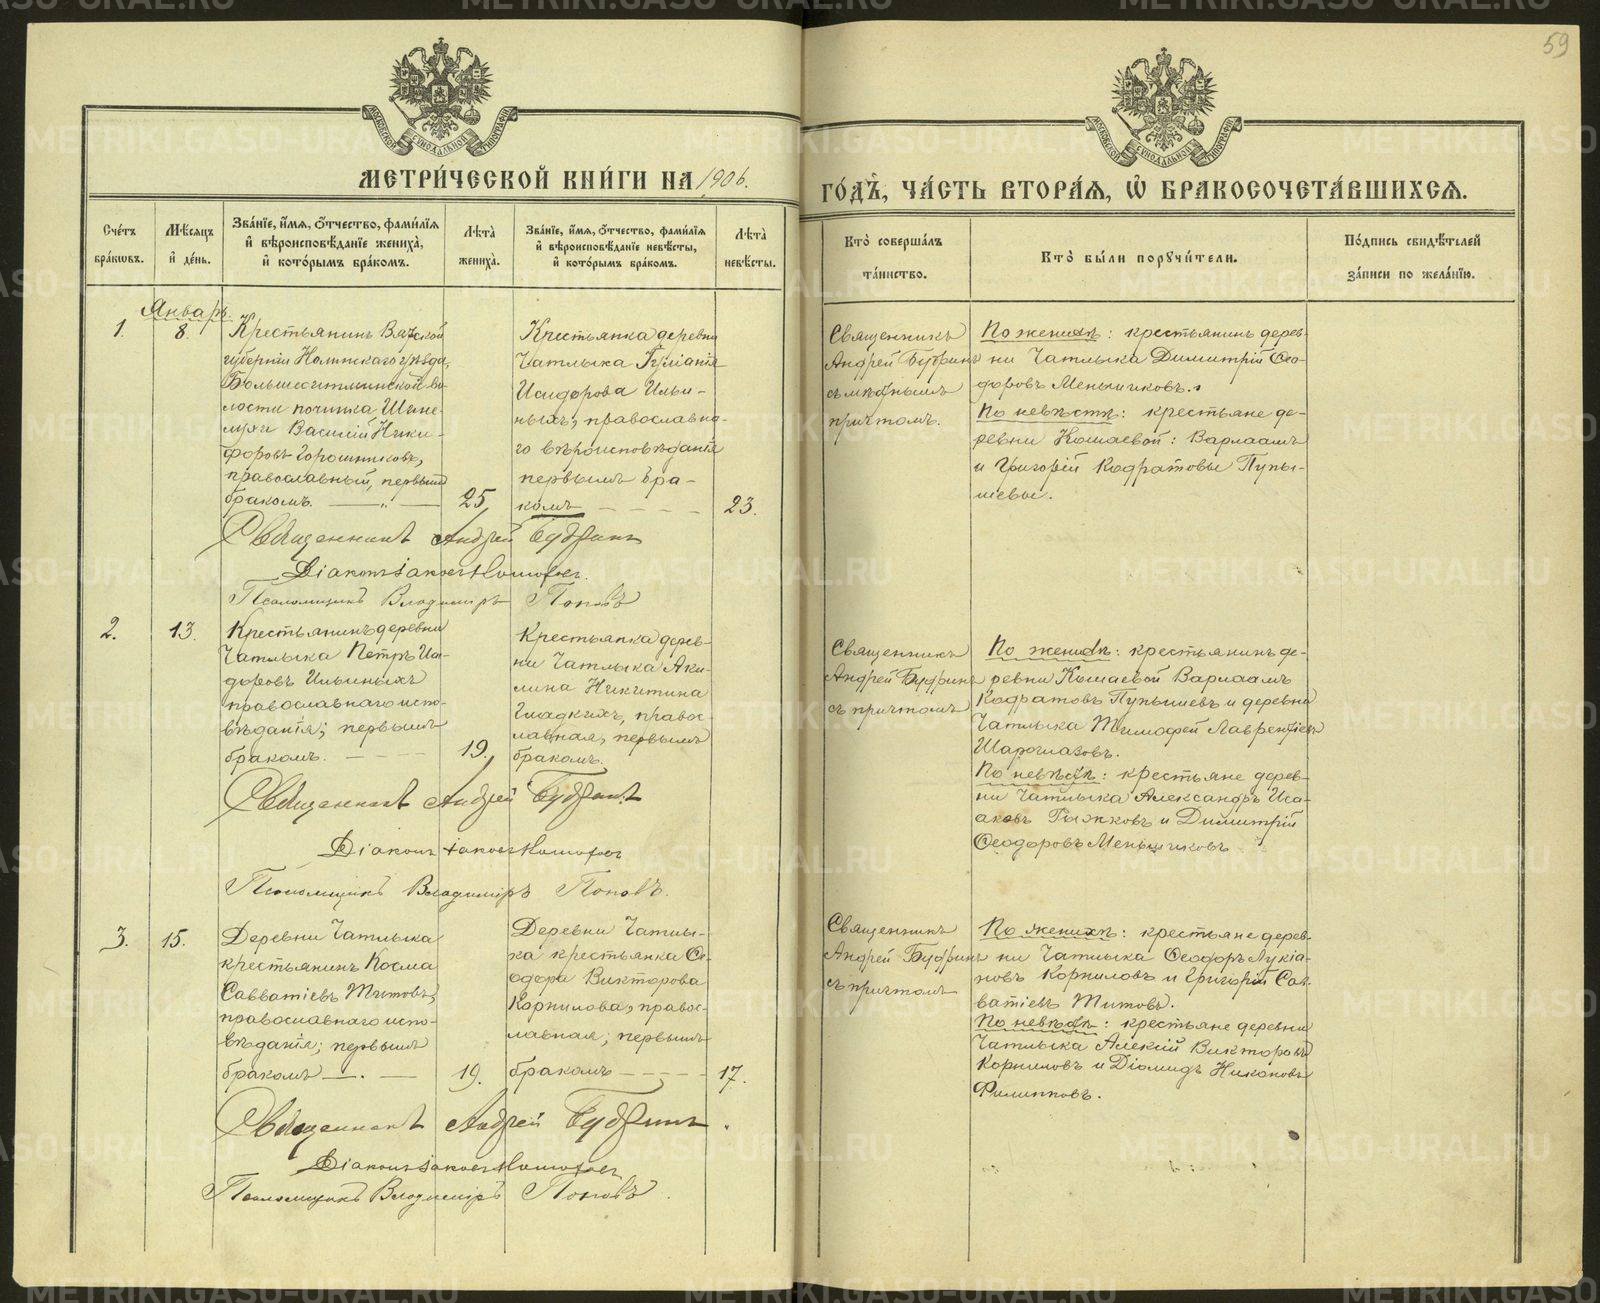 59
МОСКОВСКОЙ СѴНОДАЛЬНОЙ ТИПОГРАФІИ
МОСКОВСКОЙ СѴНОДАЛЬНОЙ ТИПОГРАФІИ
МЕТРИ́ЧЕСКОЙ КНИ́ГИ НА 1906.
ГО́ДЪ, ЧА́СТЬ ВТОРА́Я, Ѽ БРАКОСОЧЕТА́ВШИХСЯ.
Сче́тъ
бра́кѡвъ.
Мѣ́сяцъ
и҆ де́нь.
Зва́нїе, и҆́мя, ѻ҆́тчество, фами́лїя
и҆ вѣроисповѣ́данїе жениха̀,
и҆ кото́рымъ бра́комъ.
Лѣ́та
жениха̀.
Зва́нїе, и҆́мя, ѻ҆́тчество, фами́лїя
и҆ вѣроисповѣ́данїе невѣ́сты,
и҆ кото́рымъ бра́комъ.
Лѣ́та
невѣ́сты.
Кто̀ соверша́лъ
та́инство.
Кто̀ бы́ли порꙋчи́тели.
По́дпись свидѣ́телей
за́писи по жела́нїю.
Январь.
1.
8.
Крестьянинъ Вятской
губерніи Нолинскаго уѣзда,
Большеситминской во-
лости починка
Василій Ники-
форовъ Горошниковъ,
православный, первымъ
бракомъ.
25,
Крестьянка деревни
Чатлыка Іуліанія
Исидорова Ильи-
ныхъ, православна-
го вѣроисповѣданія
первымъ бра-
комъ
23.
Священникъ
Андрей Будринъ
съ мѣстнымъ
причтомъ.
По женихѣ: крестьянинъ дерев-
ни Чатлыка Димитрій Ѳео-
доровъ Меньшиковъ.
По невѣстѣ: крестьяне де-
ревни Кошаевой: Варлаамъ
и Григорій Кодратовы Пупы-
шевы.
Священникъ Андрей Будринъ
Діаконъ Іаковъ
Псаломщикъ Владиміръ Поповъ
2.
13.
Крестьянинъ деревни
Чатлыка Петръ Иси-
доровъ Ильиныхъ
православнаго испо-
вѣданія; первымъ
бракомъ.
19.
Крестьянка дерев-
ни Чатлыка Аки-
лина Никитина
Гладкихъ, правос-
лавная, первымъ
бракомъ.
Священникъ
Андрей Будринъ
съ причтомъ
По женихѣ: крестьянинъ де-
ревни Кошаевой Варлаамъ
Кодратовъ Пупышевъ и деревни
Чатлыка Тимофей Лаврентіевъ
Шароглазовъ.
По невѣстѣ: крестьяне дерев-
ни Чатлыка Александръ Иса-
аковъ Рыжковъ и Димитрій
Ѳеодоровъ Меньшиковъ
Священникъ Андрей Будринъ
Діаконъ Іаковъ
Псаломщикъ Владиміръ Поповъ.
3.
15.
Деревни Чатлыка
крестьянинъ Косма
Савватіевъ Титовъ,
православнаго испо-
вѣданія; первымъ
бракомъ
19.
Деревни Чатлы-
ка крестьянка Ѳе-
одора Викторова
Корнилова, правос-
лавная; первымъ
бракомъ
17.
Священникъ
Андрей Будринъ
съ причтомъ
По женихѣ: крестьяне дерев-
ни Чатлыка Ѳеодоръ Лукіа-
новъ Корниловъ и Григорій Сав-
ватіевъ Титовъ.
По невѣстѣ: крестьяне деревни
Чатлыка Алексій Викторовъ
Корниловъ и Діомидъ Никоновъ
Филипповъ.
Священникъ Андрей Будринъ.
Діаконъ Іаковъ
Псаломщикъ Владиміръ Поповъ.
METRIKI.GASO-URAL.RU